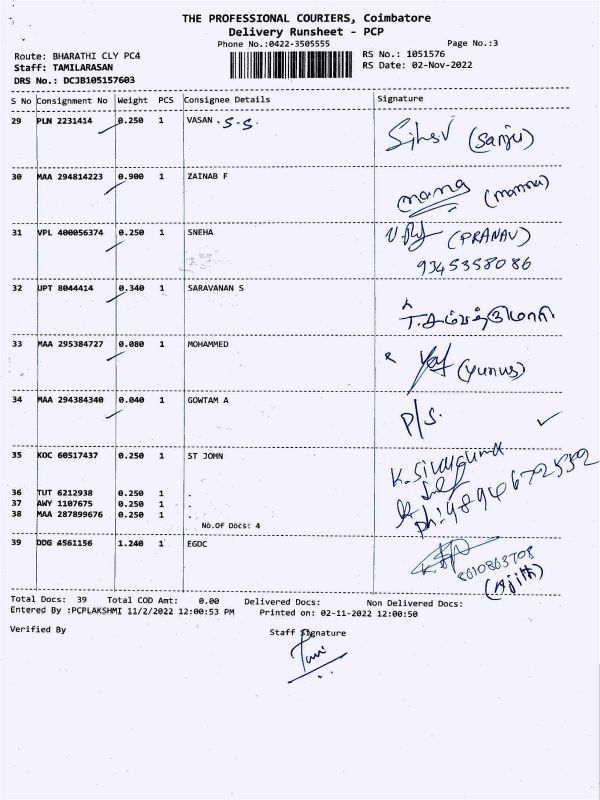 THE PROFESSIONAL COURIERS, Coimbatore
Delivery Runsheet - PCP
Phone No.:0422-3505555 Page No.:3
Route: BHARATHI CLY PC4 RS No.: 1051576
Staff: TAMILARASAN RS Date: 02-Nov-2022
DRS No.: DCJB105157603
S No Consignment No Weight PCS Consignee Details Signature
29 PLN 2231414 0.250 1 VASAN . S.S. (Sanju)
30 MAA 294814223 0.900 1 ZAINAB F
31 VPL 400056374 0.250 1 SNEHA (PRANAV)
9345358086
32 UPT 8044414 0.340 1 SARAVANAN S
33 MAA 295384727 0.080 1 MOHAMMED (Yunus)
34 MAA 294384340 0.040 1 GOWTAM A P/S.
35 KOC 60517437 0.250 1 ST JOMN
36 TUT 6212938 0.250 1 .
37 AWY 1107675 0.250 1 .
38 MAA 287899676 0.250 1 .
No.Of Docs: 4
39 DDG 4561156 1.240 1 EGDC
8010863708
(Ajith)
Total Docs: 39 Total COD Amt: 0.00 Delivered Docs: Non Delivered Docs:
Entered By :PCPLAKSHMI 11/2/2022 12:00:53 PM Printed on: 02-11-2022 12:00:50
Verified By Staff Signature